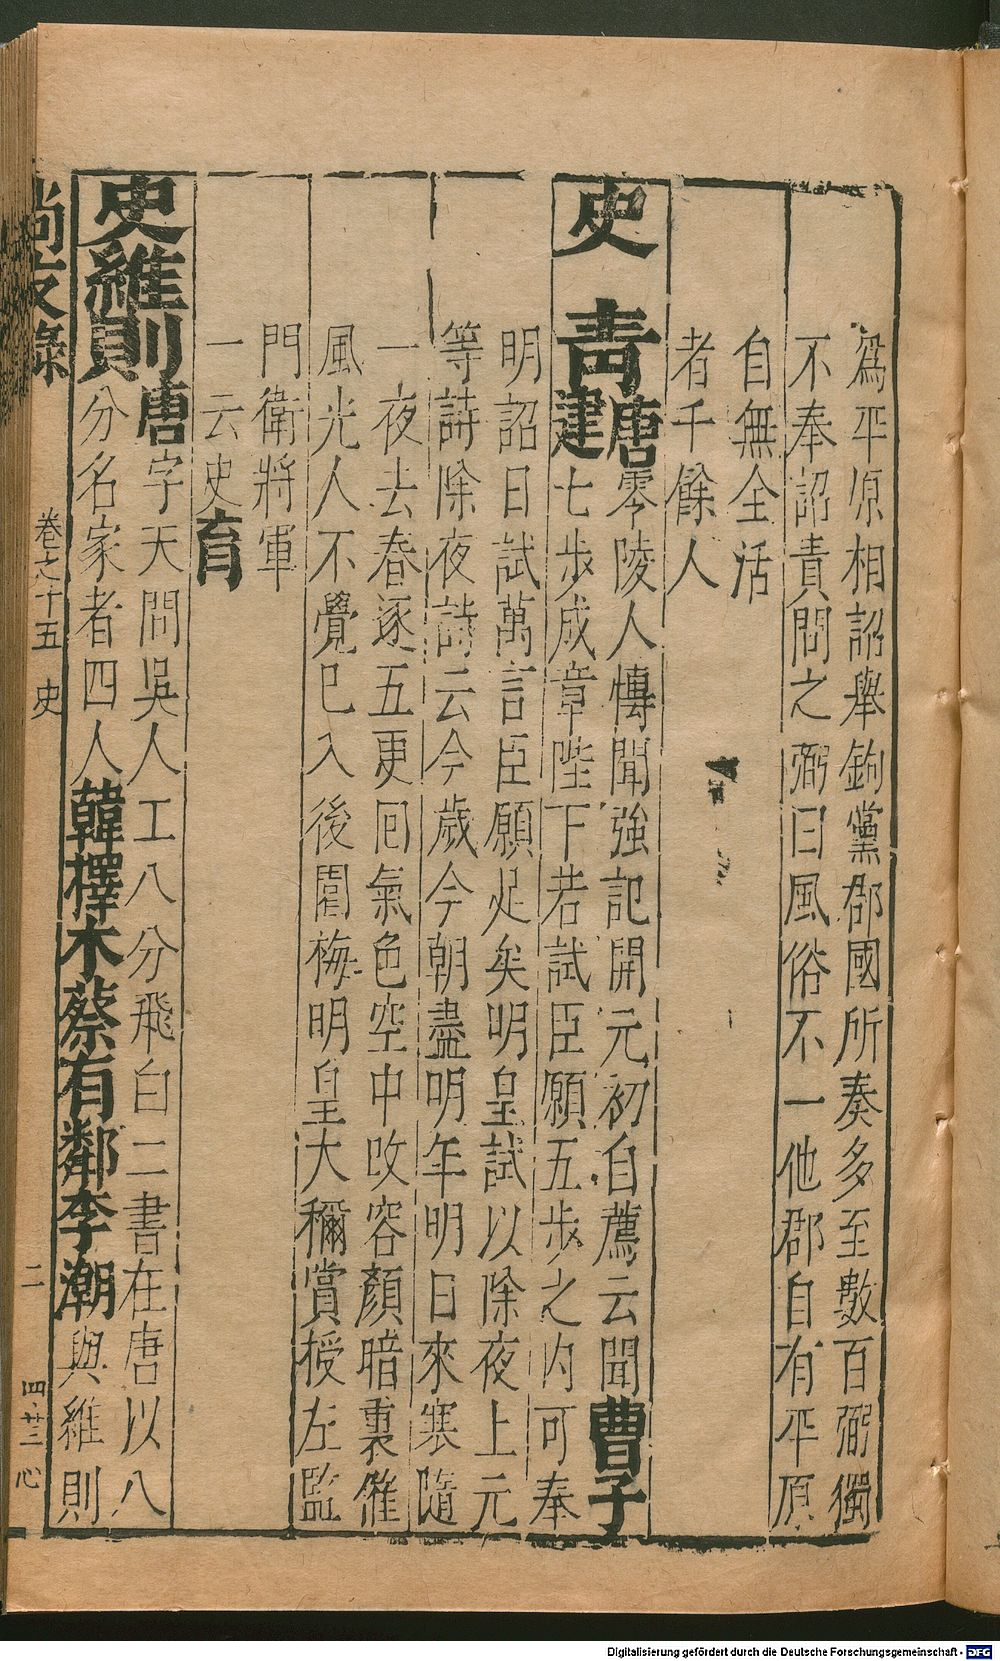 爲平原相詔舉鉤黨郡國所奏多至數百弼獨
不奉詔責問之弼曰風俗不一他郡自有平原
自無全活
者千餘人
史 青唐零陵人慱聞強記開元初自薦云聞曹子
建七步成章陛下若試臣願五步之內可奉
明詔日試萬言臣願足矣明皇試以除夜上元
等詩除夜詩云今歲今朝盡明年明日來寒隨
一夜去春逐五更囘氣色空中改容顏暗裏催
風光人不覺已入後園梅明皇大稱賞授左監
門衛將軍
一云史育
史維則唐字天問吳人工八分飛白二書在唐以八
分名家者四人韓擇木蔡有鄰李潮與維則
尚友錄 卷之十五 史 二 四廿二 心
Digitalisierung gefördert durch die Deutsche Forschungsgemeinschaft - DFG